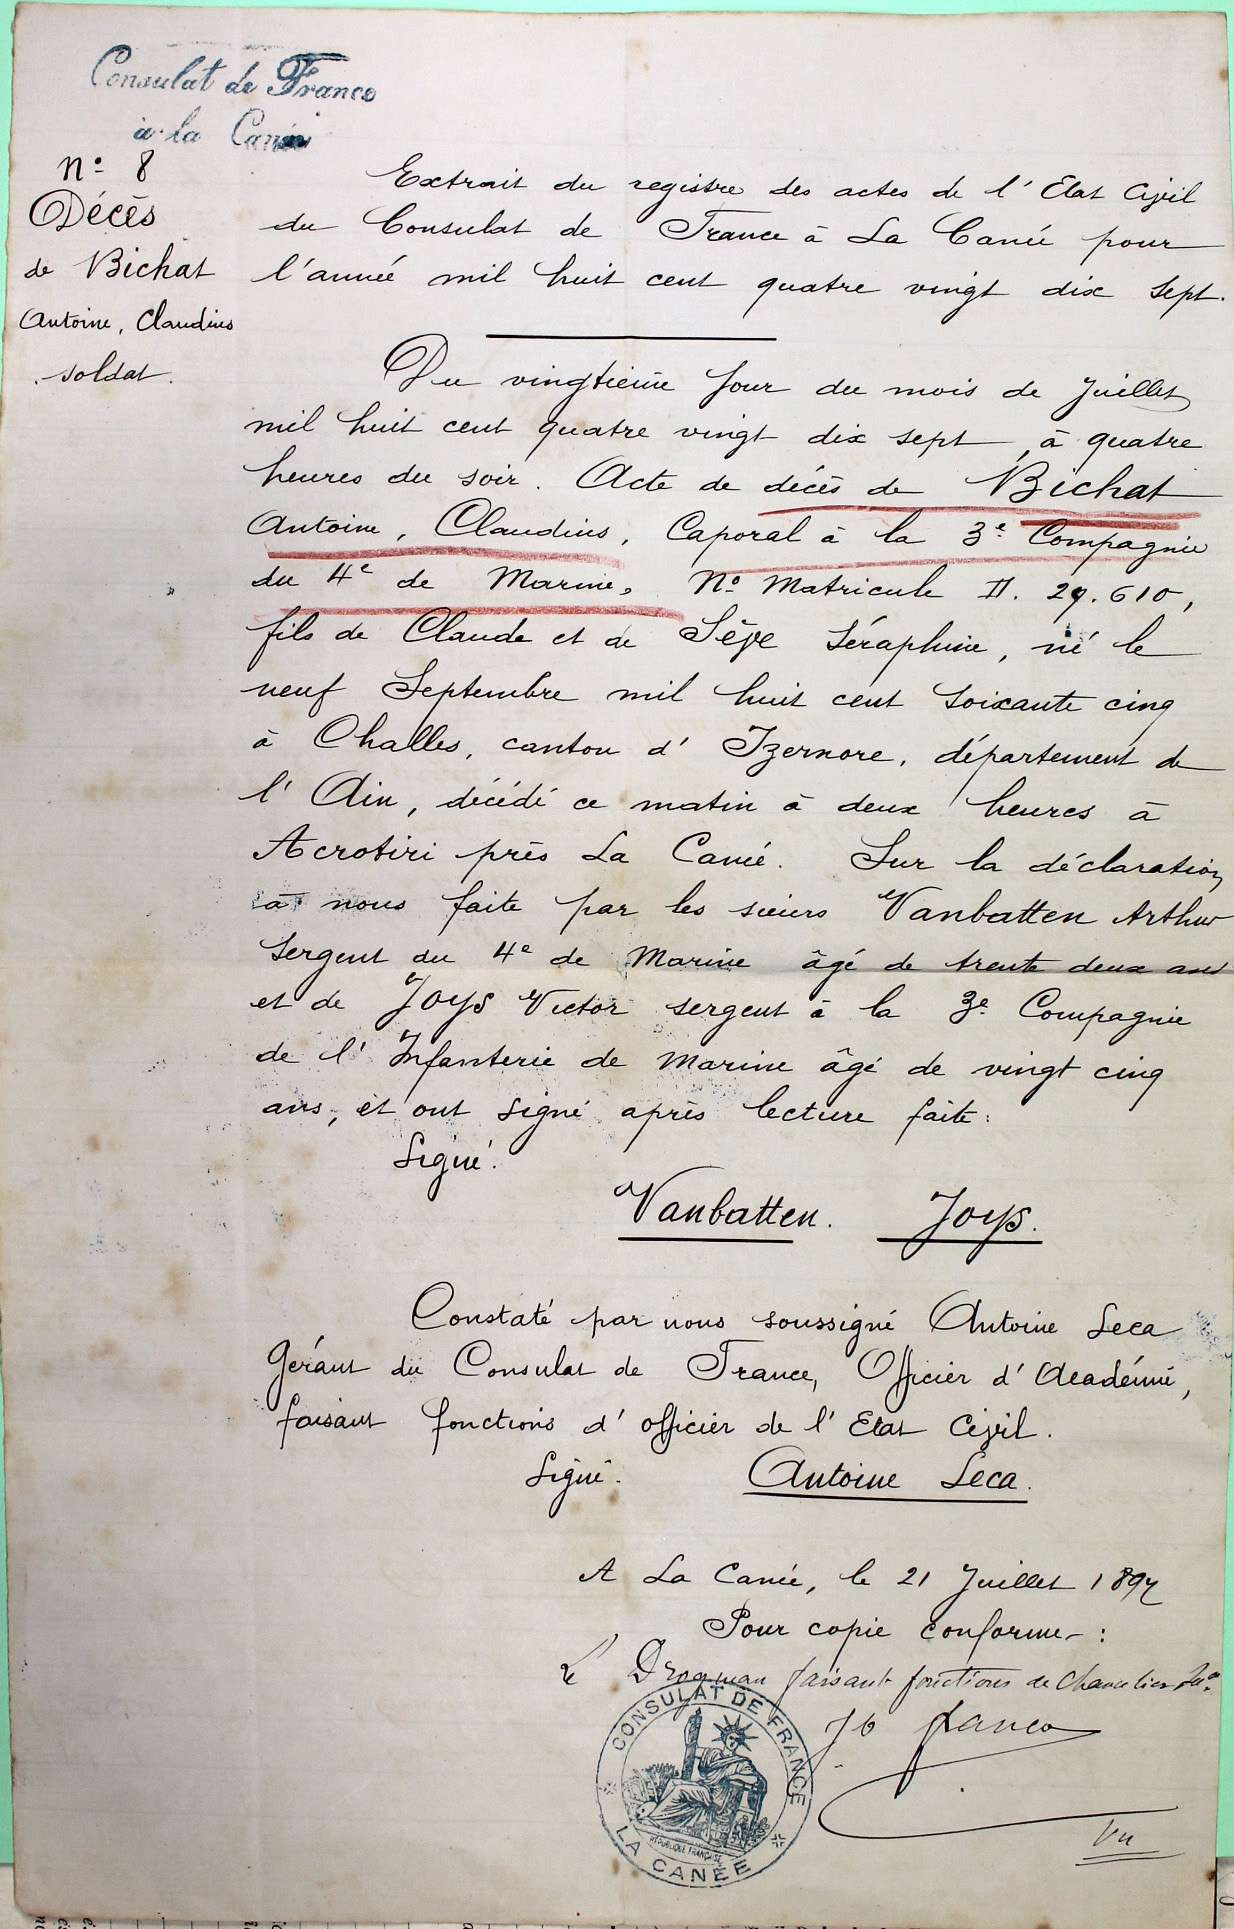 Consulat de France
à la Canée
No 8
Décès
de Bichat
Antoine, Claudius
soldat.
Extrait du registre des actes de l'Etat Civil
du Consulat de France à La Canée pour
l'année mil huit cent quatre vingt dix sept.
Du vingtième jour du mois de Juillet
mil huit cent quatre vingt dix sept, à quatre
heures du soir. Acte de décès de Bichat
Antoine, Claudius, Caporal à la 3e Compagnie
du 4e de Marine, No Matricule II. 29.610,
fils de Claude et de Sève Séraphine, né le
neuf Septembre mil huit cent soixante cinq
à Challes, canton d'Izernore, département de
l'Ain, décédé ce matin à deux heures à
Acrotiri près La Canée. Sur la déclaration
à nous faite par les sieurs Vanbatten Arthur
Sergent du 4e de Marine âgé de trente deux ans
et de Joys Victor sergent à la 3e Compagnie
de l'Infanterie de Marine âgé de vingt cinq
ans, et ont signé après lecture faite.
Signé.
Vanbatten. Joys.
Constaté par nous soussigné Antoine Leca
Gérant du Consulat de France, Officier d'Académie,
faisant fonctions d'officier de l'Etat Civil.
Signé. Antoine Leca.
A La Canée, le 21 Juillet 1897
Pour copie conforme:
Le Drogman faisant fonctions de Chancelier
CONSULAT DE FRANCE
RÉPUBLIQUE FRANÇAISE
LA CANÉE
Vu